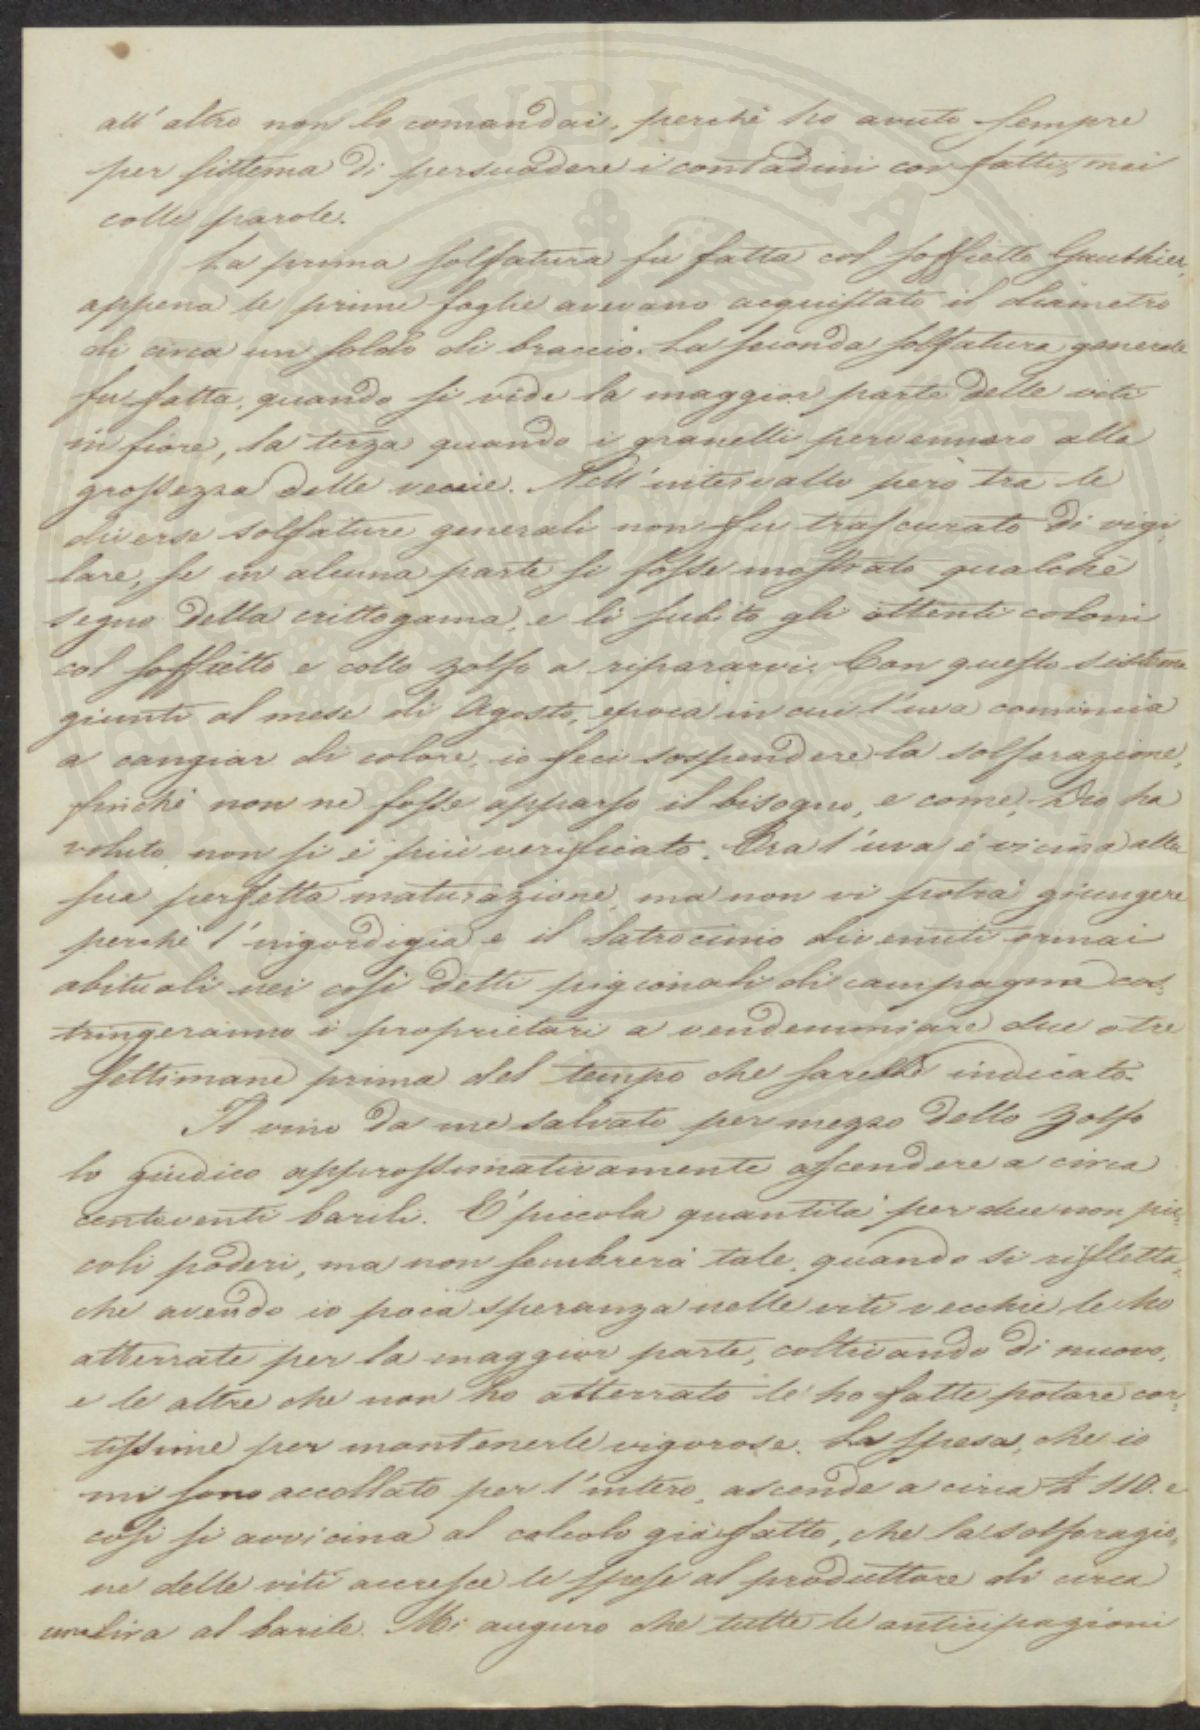 all' altro non lo comandai, perchè ho avuto sempre
per sistema di persuadere i contadini con fatti, mai
colle parole.
La prima solfatura fu fatta col soffietto Gauthier,
appena le prime foglie avevano acquistato il diametro
di circa un soldo di braccio. La seconda solfatura generale
fu fatta, quando si vide la maggior parte delle viti
in fiore, la terza quando i granelli pervennero alla
grossezza delle veccie. Nell' intervallo però tra le
diverse solfature generali non fu trascurato di vigi-
lare, se in alcuna parte si fosse mostrato qualche
segno della crittogama, e lì subito gli attenti coloni
col soffietto e collo zolfo a ripararvi. Con questo sistema
giunti al mese di Agosto, epoca in cui l'uva comincia
a cangiar di colore, io feci sospendere la solforazione,
finchè non ne fosse apparso il bisogno, e come Dio ha
voluto non si è più verificato. Ora l'uva è vicina alla
sua perfetta maturazione, ma non vi potrà giungere
perchè l'ingordigia e il latrocinio divenuti ormai
abituali nei così detti pigionali di campagna cos-
tringeranno i proprietari a vendemmiare due o tre
settimane prima del tempo che sarebbe indicato.
Il vino da me salvato per mezzo dello zolfo
lo giudico approssimativamente ascendere a circa
centoventi barili. È piccola quantità per due non pic-
coli poderi, ma non sembrerà tale, quando si rifletta,
che avendo io poca speranza nelle viti vecchie, le ho
atterrate per la maggior parte, coltivando di nuovo,
e le altre che non ho atterrato le ho fatte potare cor-
tissime per mantenerle vigorose. La spesa, che io
mi sono accollato per l'intero, ascende a circa £ 110. e
così si avvicina al calcolo già fatto, che la solforazio-
ne delle viti accresce le spese al produttore di circa
una lira al barile. Mi auguro che tutte le anticipazioni